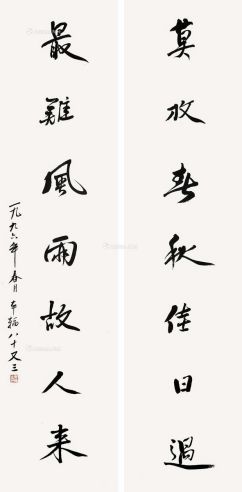 莫放春秋佳日過
最難風雨故人来
一九九六年春月八十又三